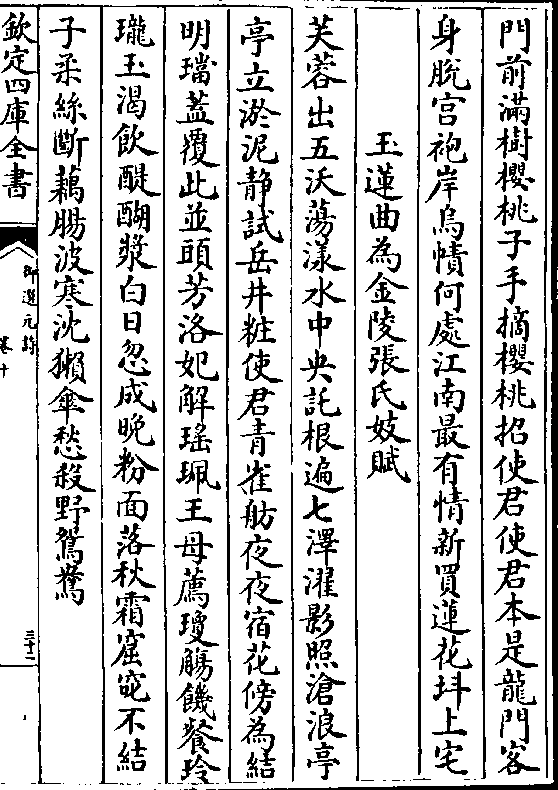 門前滿樹櫻桃子手摘櫻桃招使君使君本是龍門客
身脫宮袍岸烏幘何處江南最有情新買蓮花㘰上宅
玉蓮曲為金陵張氏妓賦
芙蓉出五沃蕩漾水中央託根遍七澤濯影照滄浪亭
亭立淤泥靜試岳井粧使君青雀舫夜夜宿花傍為結
明璫蓋覆此並頭芳洛妃解瑤珮王母薦瓊觴饑餐玲
瓏玉渴飲醍醐漿白日忽成晚粉面落秋霜窟窀不結
子柔絲斷藕腸波寒沈獺傘愁殺野鴛鴦
欽定四庫全書
御選元詩
卷十
三十二